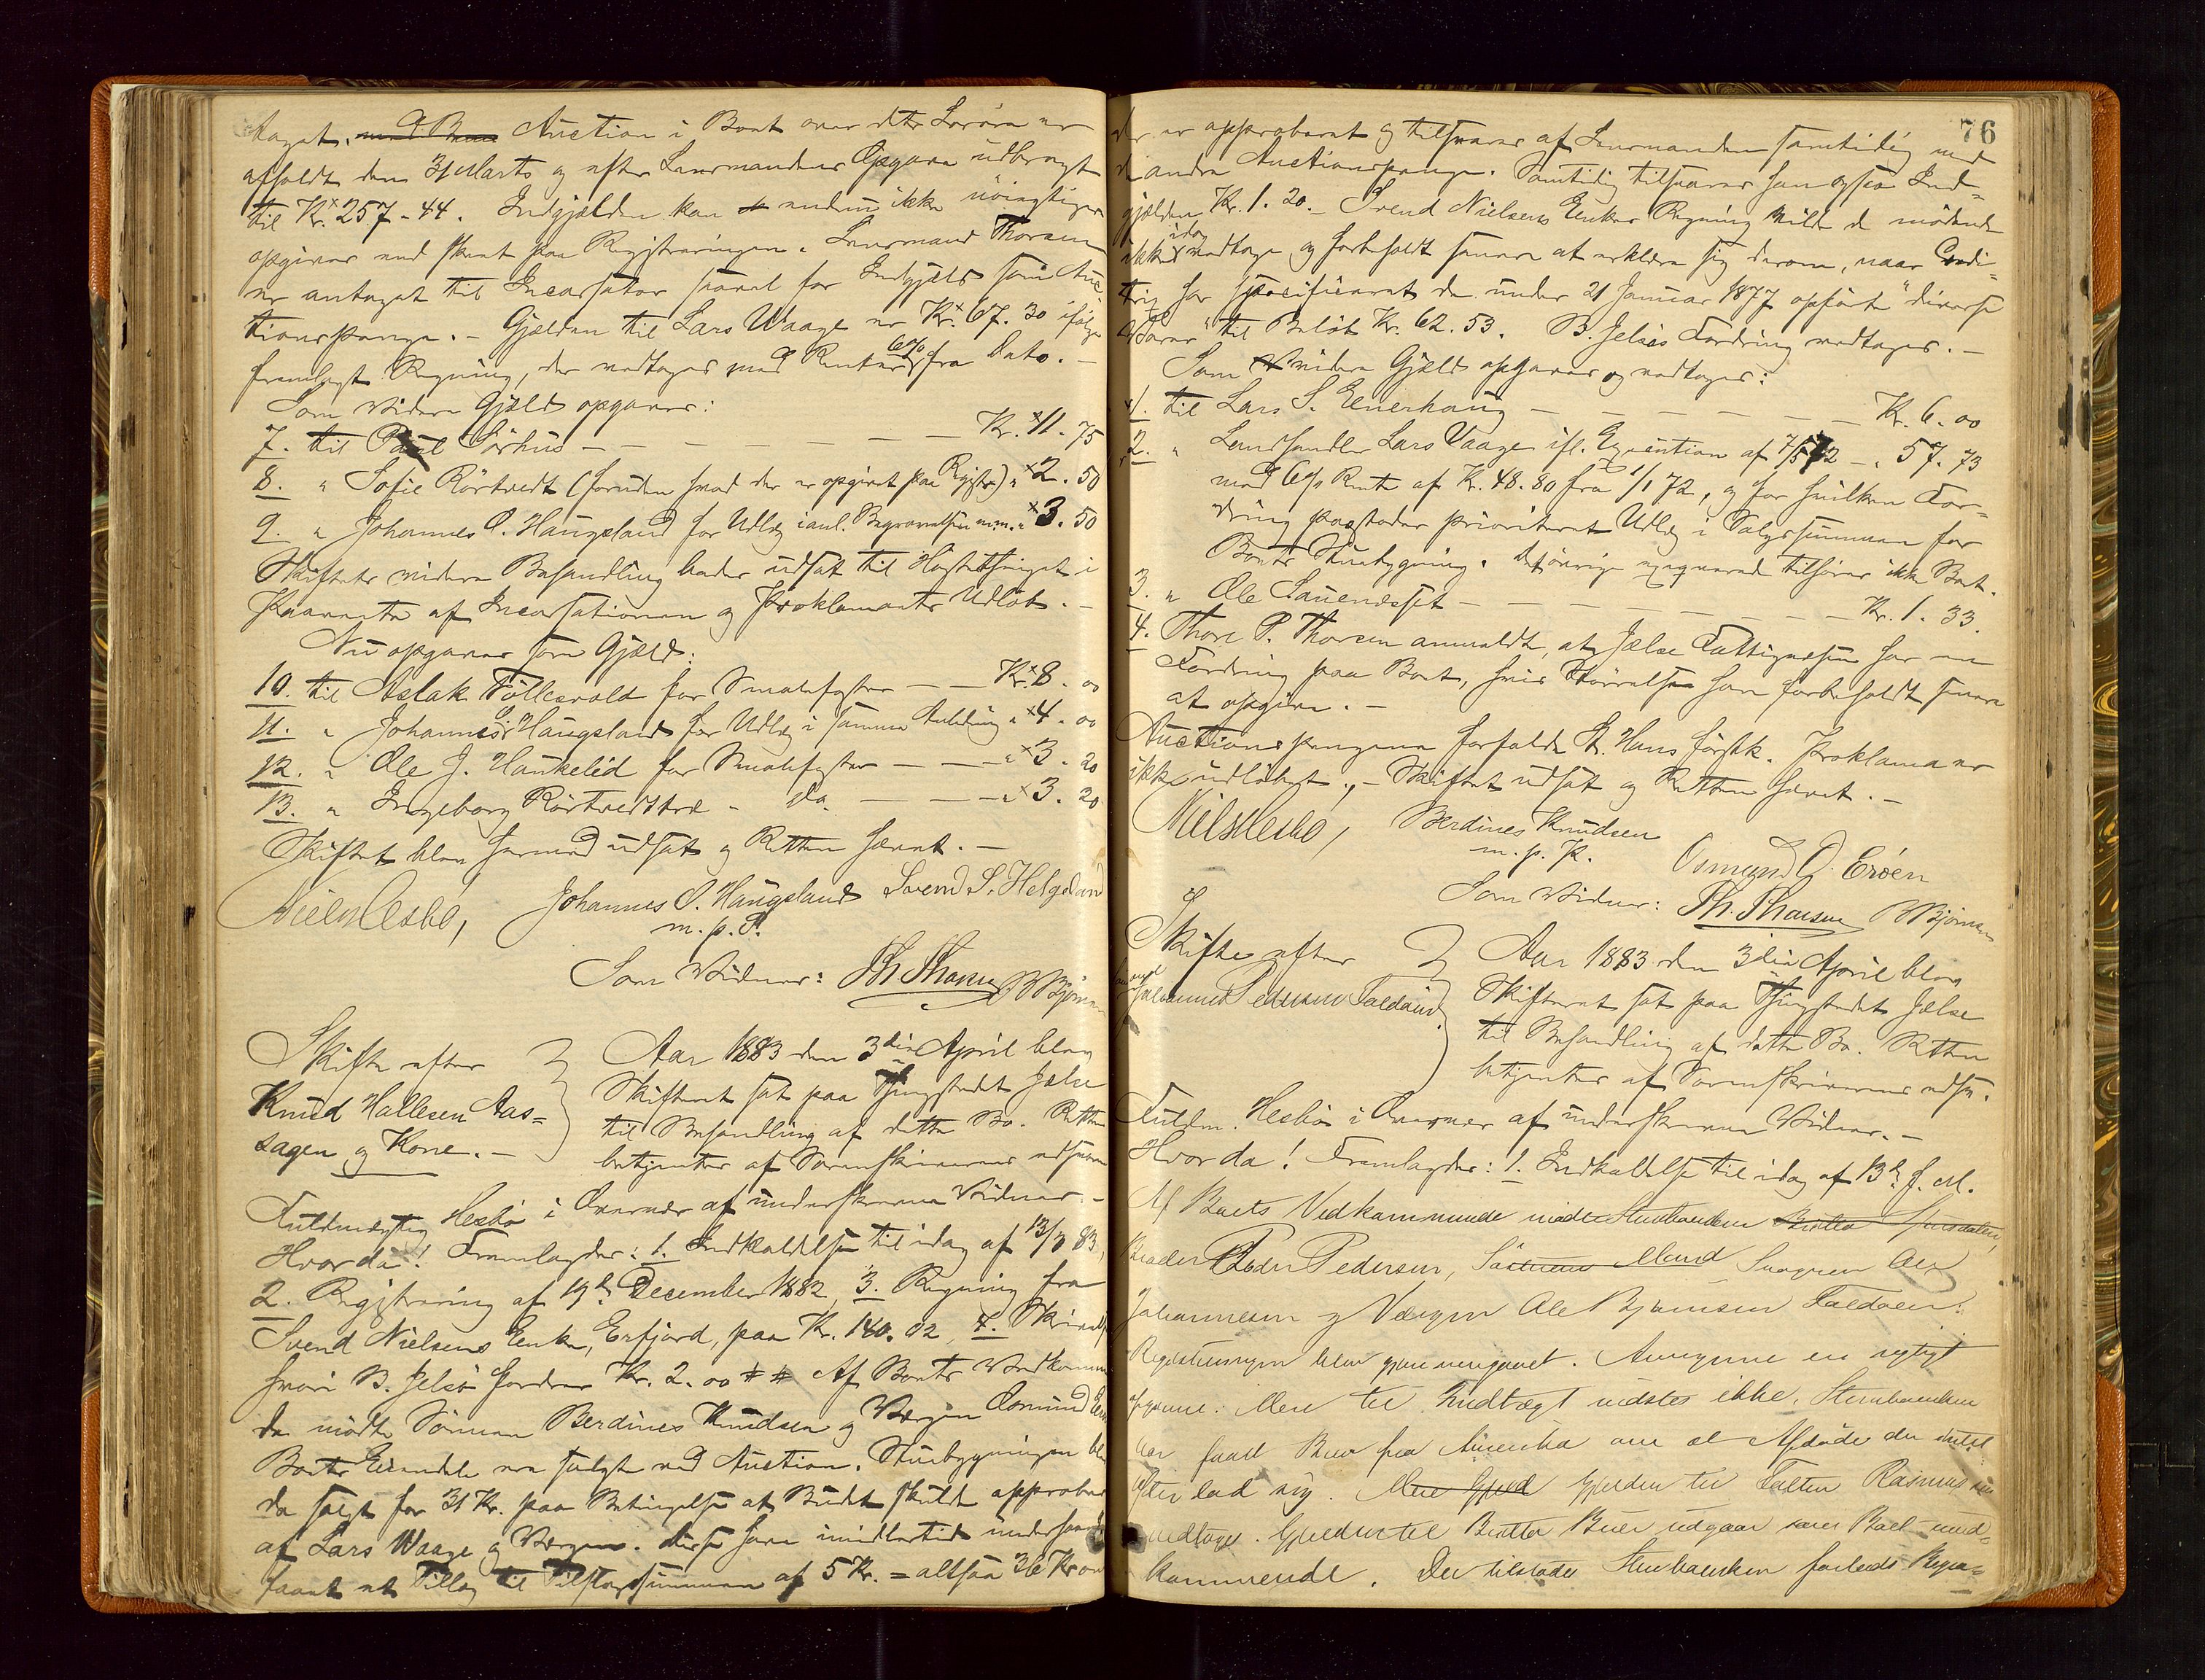 taget. Auction i Boet over dets Løsøre er
afholdt den 31 Marts og efter Lensmandens Opgave udbragt
til Kr. 257-44. Indgjælden kan endnu ikke nøiagtigere
opgives end skeet paa Registreringen. Lensmand Thorsen
er antaget til Incassator saavel for Indgjæld som Auc-
tionspenge. - Gjælden til Lars Waage er Kr. 67.30 ifølge
fremlagt Regning, der vedtages med Renter 6% fra Dato. -
Som videre Gjæld opgaves:
7. til Paul Sørhus - - - - - Kr. 11.75
8. " Sofie Rørtvedt (foruden hvad der er opgivet paa Registr.) " 2.50
9. " Johannes O. Haugsland for Udlæg i anl. Begravelsen m.m. " 3.50
Skiftets videre Behandling bødes udsat til Høstthinget i
Paavente af Incassationen og Proklamaets Udløb. -
Nu opgaves som Gjæld:
10. til Aslak Tøllesvold for - - Kr. 8.00
11. " Johannes O. Haugsland for Udlæg i samme Anledning " 4.00
12. " Ole J. Haukelid for - - " 3.20
13. " Ingeborg Rørtvedttræ - do. - - " 3.20
Skiftet blev hermed udsat og Retten hævet. -
Niels Hesbø, Johannes O. Haugsland Svend S. Helgeland
m. p. P.
Som Vidner: Th. Thorsen B Bjørnsen
Skifte efter
Knud Hallesen Aas-
sagen og Kone. -
Aar 1883 den 3die April blev
Skifteret sat paa Thingstedet Jelse
til Behandling af dette Bo. Retten
betjentes af Sorenskriverens edsvorne
Fuldmægtig Hesbø i Overvær af underskrevne Vidner. -
Hvorda! Fremlagdes: 1. Indkaldelse til idag af 13/3 83,
2. Registrering af 19de December 1882, 3. Regning fra
Svend Nielsens Enke, Erfjord, paa Kr. 140.02, 4. Skrivelse
hvori B. Jelsø fordrer Kr. 2.00 Af Boets Vedkommen-
de mødte Sønnen Berdines Knudsen og Værgen Osmund Erøen
Boets Eiendele ere solgte ved Auction. Stuebygningen blev
da solgt for 31 Kr. paa Betingelse at Budet skulde approberes
af Lars Waage og Værgen. Disse have imidlertid underhaanden
faaet et Tillæg til Tilslagssummen af 5 Kr. = altsaa 36 Kr
76
der er approberet og tilsvares af Lensmanden samtidig med
de andre Auctionspenge. Samtidig tilsvarer han ogsaa Ind-
gjælden Kr. 1.20. - Svend Nielsens Enkes Regning vilde de mødende
ikke idag vedtage og forbeholdt senere at erklære sig derom, naar Credi-
trix har specificeret de under 21 Januar 1877 opførte "diverse
Varer" til Beløb Kr. 62.53. B. Jelsøs Fordring vedtages. -
Som videre Gjæld opgaves og vedtages:
1. til Lars S. Eiverhaug - - - - - Kr. 6.00
2. " Landhandler Lars Vaage ifl. Execution af 7/5 72 - " 57.73
med 6% Rente af Kr. 48.80 fra 1/1 72, og for hvilken For-
dring paastodes prioriteret Udlæg i Salgssummen for
Boets Stuebygning. Det øvrige exequerede tilhører ikke Boet.
3. " Ole Sauenesset - - - - - Kr. 1.33.
4. Thore P. Thorsen anmeldte, at Jelse Fattigvæsen har en
Fordring paa Boet, hvis Størrelse han forbeholdt senere
at opgive. -
Auctionspengene forfalde St. Hans førstk. Proklama er
ikke udløbet. - Skiftet udsat og Retten hævet. -
Niels Hesbø, Berdines Knudsen
m. p. P. Osmund O. Erøen
Som Vidner: Th. Thorsen B Bjørnsen
Skifte efter
Johannes Pedersen Foldøen.
Aar 1883 den 3die April blev
Skifteret sat paa Thingstedet Jelse
til Behandling af dette Bo. Retten
betjentes af Sorenskriverens edsv.
Fuldm. Hesbø i Overvær af underskrevne Vidner. -
Hvorda! Fremlagdes: 1. Indkaldelse til idag af 13de f. M.
Af Boets Vedkommende mødte Stervboenken
Broder Peder Pedersen, Svogeren
Johannesen og Værgen Ole Bjørnsen Foldøen.
Registreringen blev gjennemgaaet. Arvingerne ere rigtigt
opgivne. Mere til Indtægt vidstes ikke. Stervboenken
har faaet Brev fra Amerika om at Afdøde der intet
efterlod sig. Gjælden til Rasmus
vedtages. Gjælden til Buer udgaar som Boet uved-
kommende. Der tilstodes Stervboenken